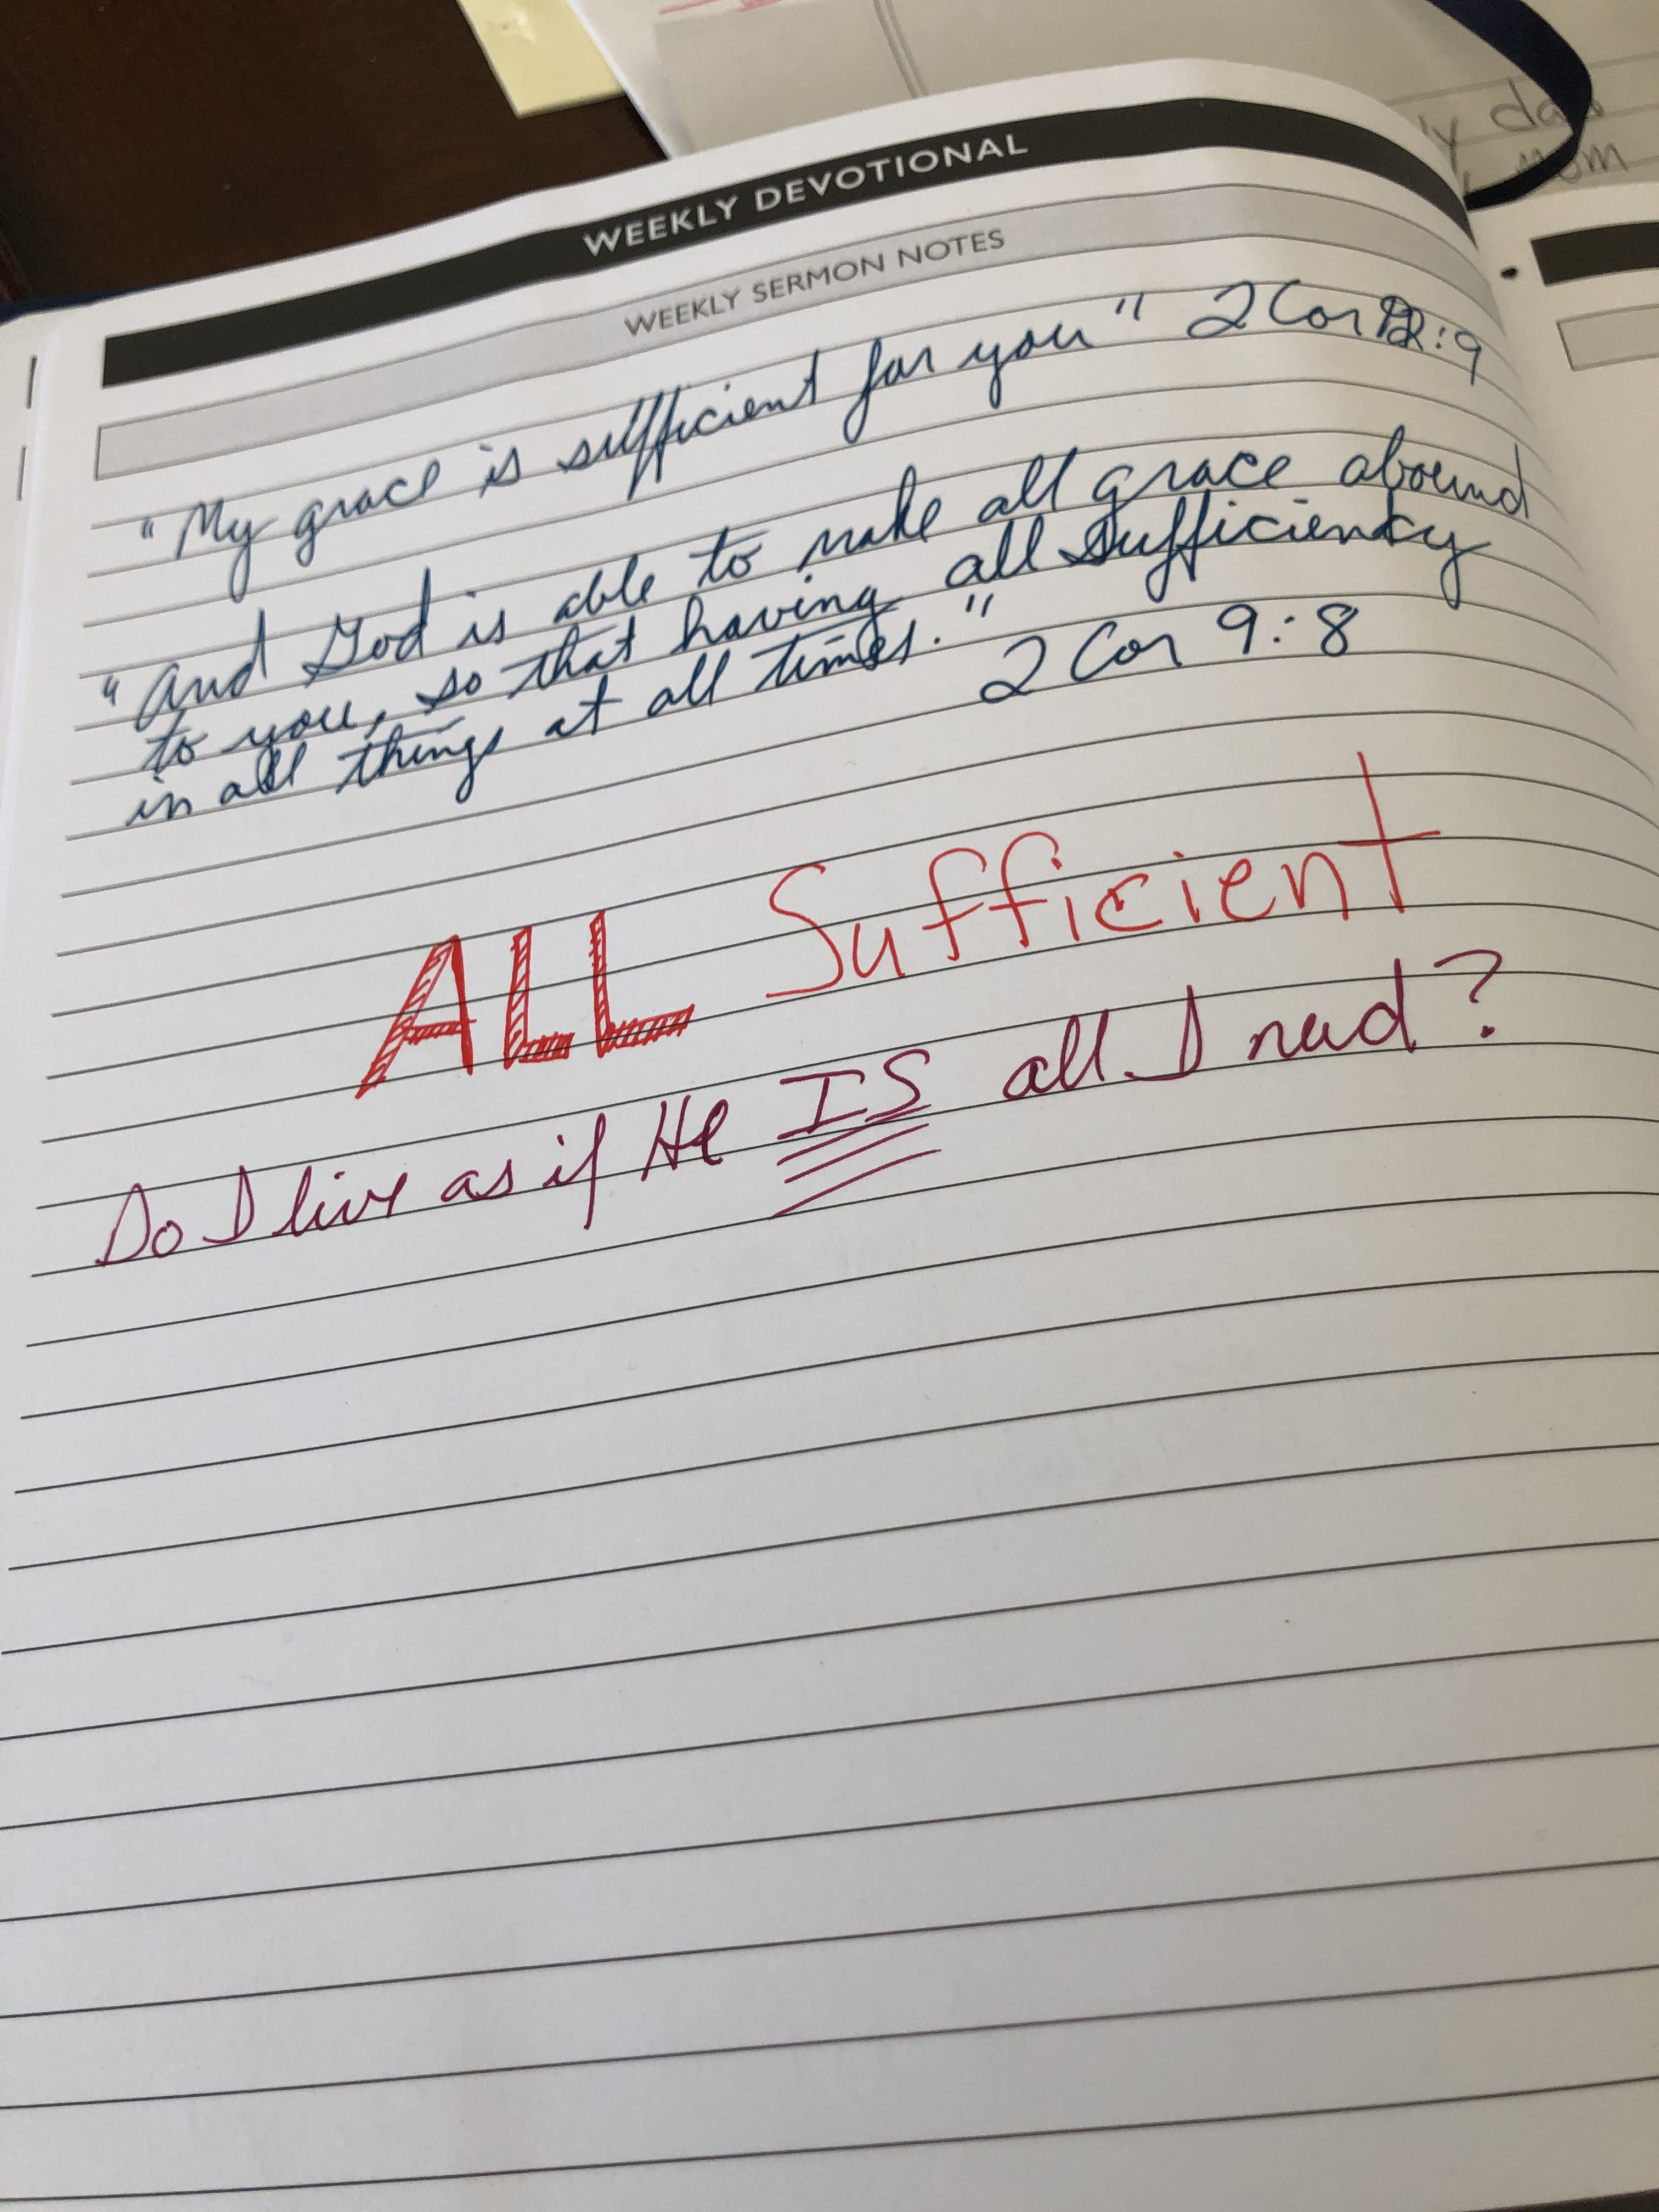 WEEKLY DEVOTIONAL
WEEKLY SERMON NOTES
"My grace is sufficient for you" 2 Cor 12:9
"And God is able to make all grace abound
to you, so that having all sufficiency
in all things at all times."
2 Cor 9:8
ALL Sufficient
Do I live as if He IS all I need?
mom